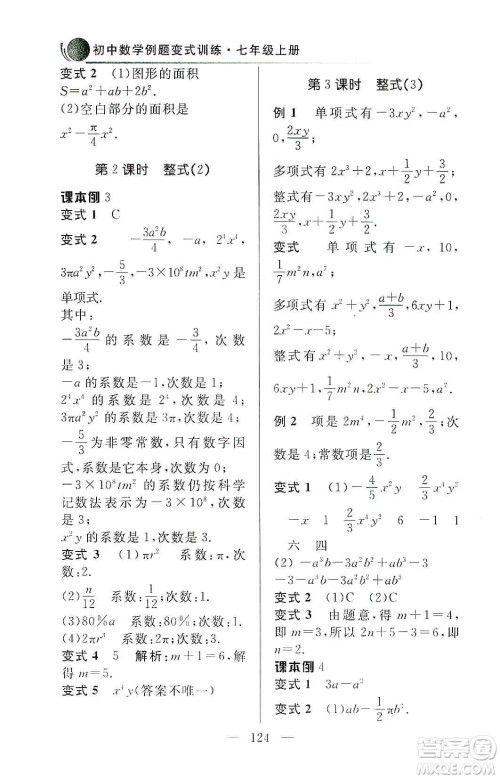 初中数学例题变式训练·七年级上册
变式 2 (1)图形的面积
S=a²+ab+2b².
(2)空白部分的面积是
x²-π/4 x².
第 2 课时 整式(2)
课本例 3
变式 1 C
变式 2 -3a²b/4, -a, 2⁴x⁴,
3πa²y², -5/3, -3×10⁸tm²x² 是
单项式.
其中:
-3a²b/4 的系数是 -3/4, 次
数是 3;
-a 的系数是-1,次数是 1;
2⁴x⁴ 的系数是 2⁴,次数是 4;
3πa²y² 的系数是 3π,次数是 4;
-5/3 为非零常数,只含有字
母因数,系数是它本身,次数是 0;
-3×10⁸tm²x² 的系数仍按科学
记数法表示为-3×10⁸,次数是 5.
变式 3 (1)πr² 系数:π;
次数:2.
(2)n/12 系数:1/12;次数:1.
(3)80%a 系数:80%;次数:1.
(4)2πr³ 系数:2π;次数:3.
变式 4 5 解析:m+1=6,
m=5.
变式 5 x⁴y(答案不唯一)
第 3 课时 整式(3)
例 1 单项式有-3xy²,-a,
0,2xy/3;
多项式有 2x³+1,2x²+x+2;
整式有-3xy²,2x³+1,-a,0,
2xy/3,2x²+x+2.
变式 单项式有-x,10,
1/7 m²n,a⁷;
多项式有 x²+y²,a+b/3,6xy+1,
2x²-x-5.
整式有 x²+y²,-x,a+b/3,10,
6xy+1,1/7 m²n,2x²-x-5,a⁷.
例 2 项是 2m⁴,-2/3,次
数是 4,常数项是-2/3.
变式 1 (1)-4/5 x² 2/3 x
-x 1 2/3 6 1 1
六 四
(2)-a³b-3a²b²+2/3 ab³-5
变式 2 (1)C (2)C
变式 3 由题意,m+1=4,
所以 m=3.由 2n+5-m=6,即
n=2.
课本例 4
变式 1 3a-a²
变式 2 (1)ab-
124